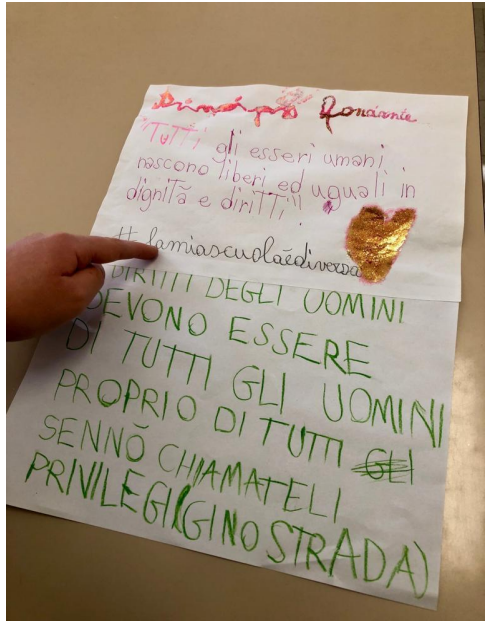 Principio Fondante
"Tutti gli esseri umani
nascono liberi ed uguali in
dignità e diritti"
#lamiascuolaèdiversa
DIRITTI DEGLI UOMINI
DEVONO ESSERE
DI TUTTI GLI UOMINI
PROPRIO DI TUTTI GLI
SENNÒ CHIAMATELI
PRIVILEGI (GINO STRADA)